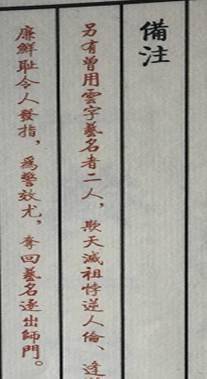 備注
另有曾用雲字藝名者二人，欺天滅祖悖逆人倫、逢
廉鮮耻令人發指，爲警效尤，奪回藝名逐出師門。